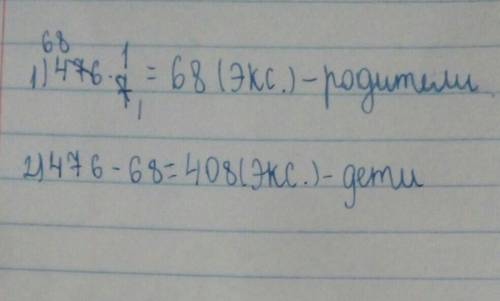 68
1) 476 · 1/7 = 68 (экс.) - родители
1
2) 476 - 68 = 408 (экс.) - дети